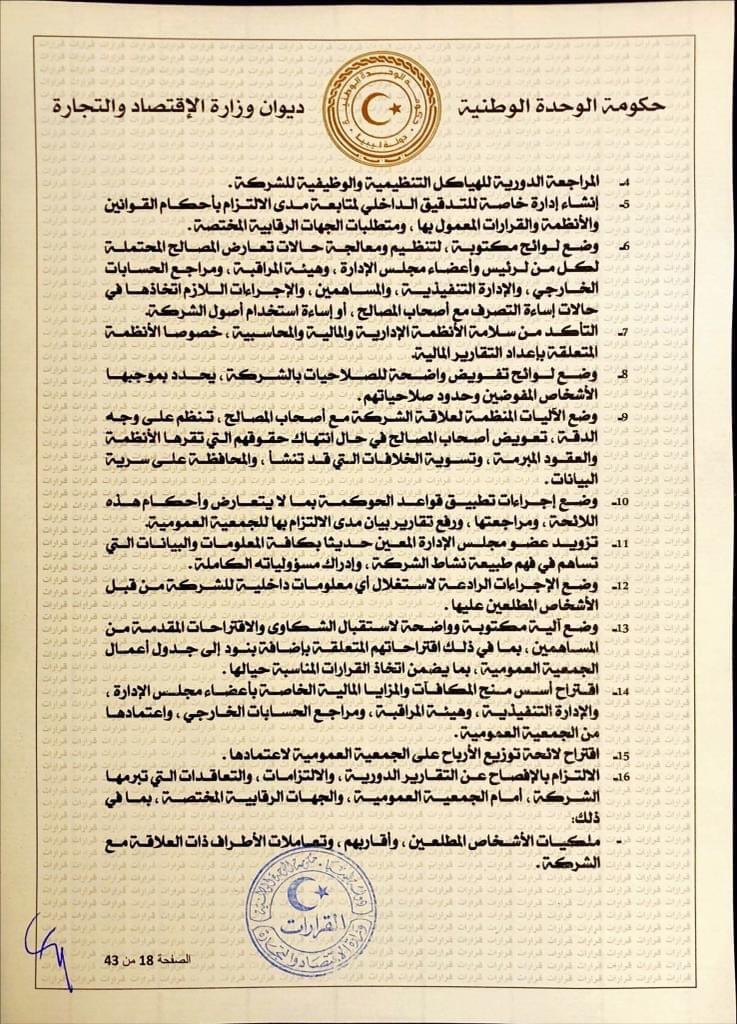 حكومة الوحدة الوطنية
ديوان وزارة الإقتصاد والتجارة
حكومة الوحدة الوطنية
دولة ليبيا
4- المراجعة الدورية للهياكل التنظيمية والوظيفية للشركة .
5- إنشاء إدارة خاصة للتدقيق الداخلي لمتابعة مدى الالتزام بأحكام القوانين
والأنظمة والقرارات المعمول بها ، ومتطلبات الجهات الرقابية المختصة .
6- وضع لوائح مكتوبة ، لتنظيم ومعالجة حالات تعارض المصالح المحتملة
لكل من لرئيس وأعضاء مجلس الإدارة ، وهيئة المراقبة ، ومراجع الحسابات
الخارجي ، والإدارة التنفيذية ، والمساهمين ، والإجراءات اللازم اتخاذها في
حالات إساءة التصرف مع أصحاب المصالح ، أو إساءة استخدام أصول الشركة.
7- التأكد من سلامة الأنظمة الإدارية والمالية والمحاسبية ، خصوصا الأنظمة
المتعلقة بإعداد التقارير المالية.
8- وضع لوائح تفويض واضحة للصلاحيات بالشركة ، يحدد بموجبها
الأشخاص المفوضين وحدود صلاحياتهم .
9- وضع الآليات المنظمة لعلاقة الشركة مع أصحاب المصالح ، تنظم على وجه
الدقة ، تعويض أصحاب المصالح في حال انتهاك حقوقهم التي تقرها الأنظمة
والعقود المبرمة ، وتسوية الخلافات التي قد تنشأ ، والمحافظة على سرية
البيانات .
10- وضع إجراءات تطبيق قواعد الحوكمة بما لا يتعارض وأحكام هذه
اللائحة ، ومراجعتها ، ورفع تقارير بيان مدى الالتزام بها للجمعية العمومية.
11- تزويد عضو مجلس الإدارة المعين حديثا بكافة المعلومات والبيانات التي
تساهم في فهم طبيعة نشاط الشركة ، وإدراك مسؤولياته الكاملة .
12- وضع الإجراءات الرادعة لاستغلال أي معلومات داخلية للشركة من قبل
الأشخاص المطلعين عليها .
13- وضع آلية مكتوبة وواضحة لاستقبال الشكاوى والاقتراحات المقدمة من
المساهمين ، بما في ذلك اقتراحاتهم المتعلقة بإضافة بنود إلى جدول أعمال
الجمعية العمومية ، بما يضمن اتخاذ القرارات المناسبة حيالها .
14- اقتراح أسس منح المكافآت والمزايا المالية الخاصة بأعضاء مجلس الإدارة ،
والإدارة التنفيذية ، وهيئة المراقبة ، ومراجع الحسابات الخارجي ، واعتمادها
من الجمعية العمومية .
15- اقتراح لائحة توزيع الأرباح على الجمعية العمومية لاعتمادها .
16- الالتزام بالإفصاح عن التقارير الدورية ، والالتزامات ، والتعاقدات التي تبرمها
الشركة ، أمام الجمعية العمومية ، والجهات الرقابية المختصة ، بما في
ذلك:
- ملكيات الأشخاص المطلعين ، وأقاربهم ، وتعاملات الأطراف ذات العلاقة مع
الشركة .
القرارات
وزارة الاقتصاد والتجارة
الصفحة 18 من 43